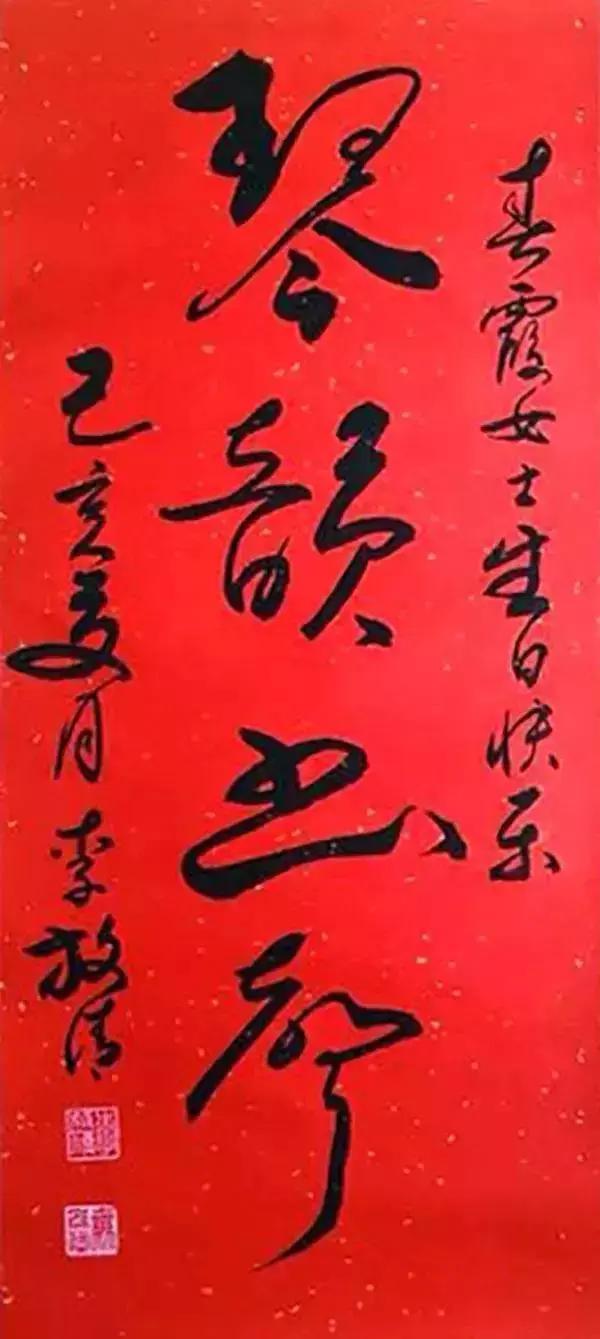 春霞女士生日快乐
琴韵书声
己亥夏月 李放清